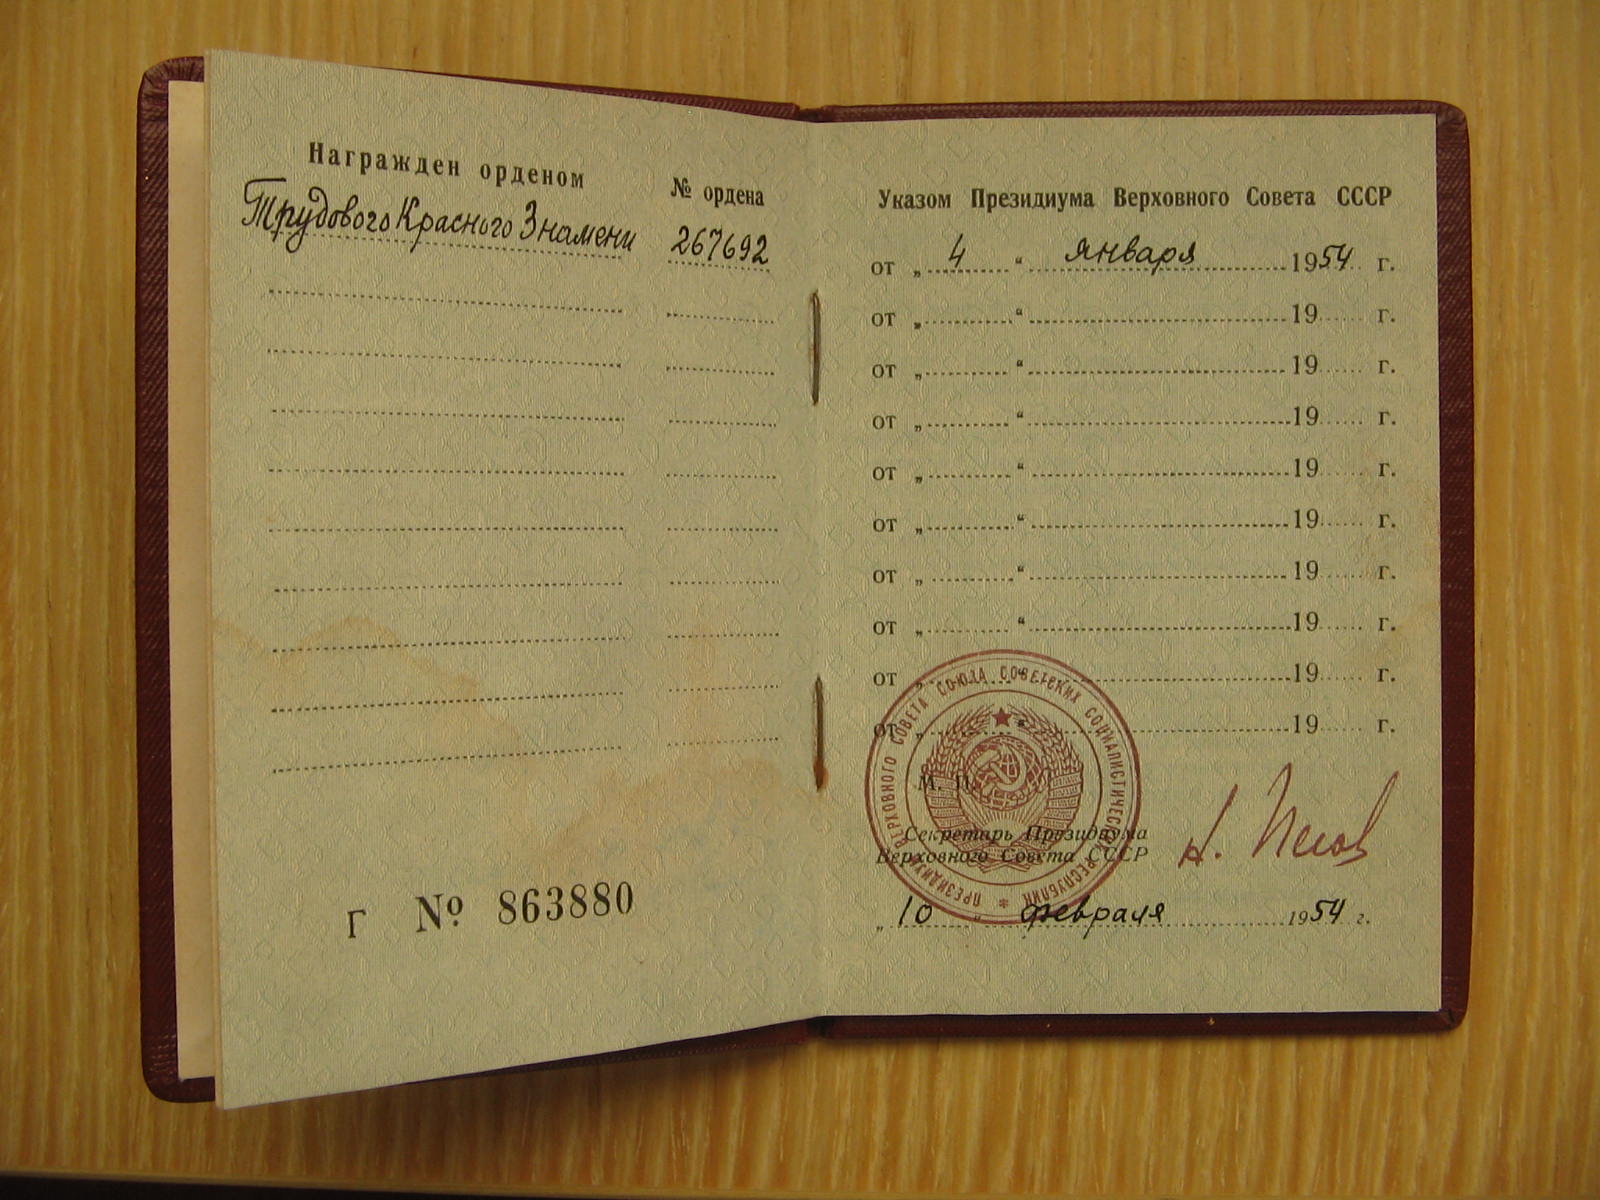 Награжден орденом
№ ордена
Трудового Красного Знамени
267692
Г № 863880
Указом Президиума Верховного Совета СССР
от „ 4 “ января 1954 г.
от „ “ 19 г.
от „ “ 19 г.
от „ “ 19 г.
от „ “ 19 г.
от „ “ 19 г.
от „ “ 19 г.
от „ “ 19 г.
от „ “ 19 г.
от „ “ 19 г.
М. П.
Секретарь Президиума
Верховного Совета СССР
Н. Пегов
„ 10 “ февраля 1954 г.
ПРЕЗИДИУМ ВЕРХОВНОГО СОВЕТА СОЮЗА СОВЕТСКИХ СОЦИАЛИСТИЧЕСКИХ РЕСПУБЛИК